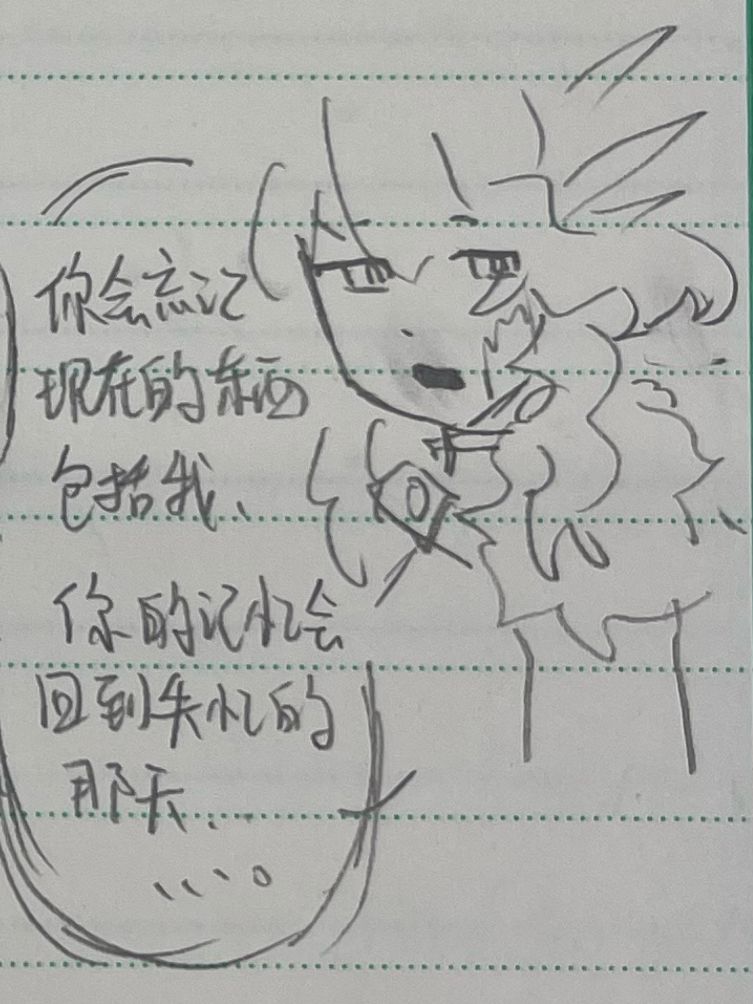 你会忘记
现在的东西
包括我、
你的记忆会
回到失忆的
那天、
…。